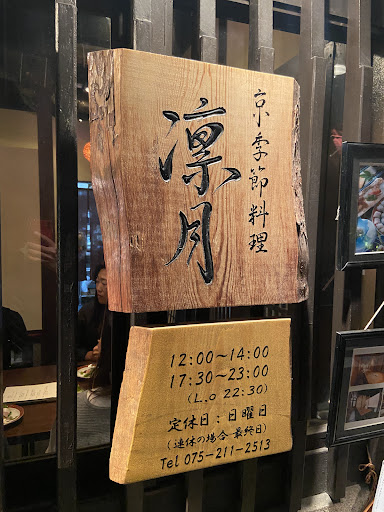 京季節料理
凛月
12:00〜14:00
17:30〜23:00
(L.o 22:30)
定休日:日曜日
(連休の場合 最終日)
Tel 075-211-2513